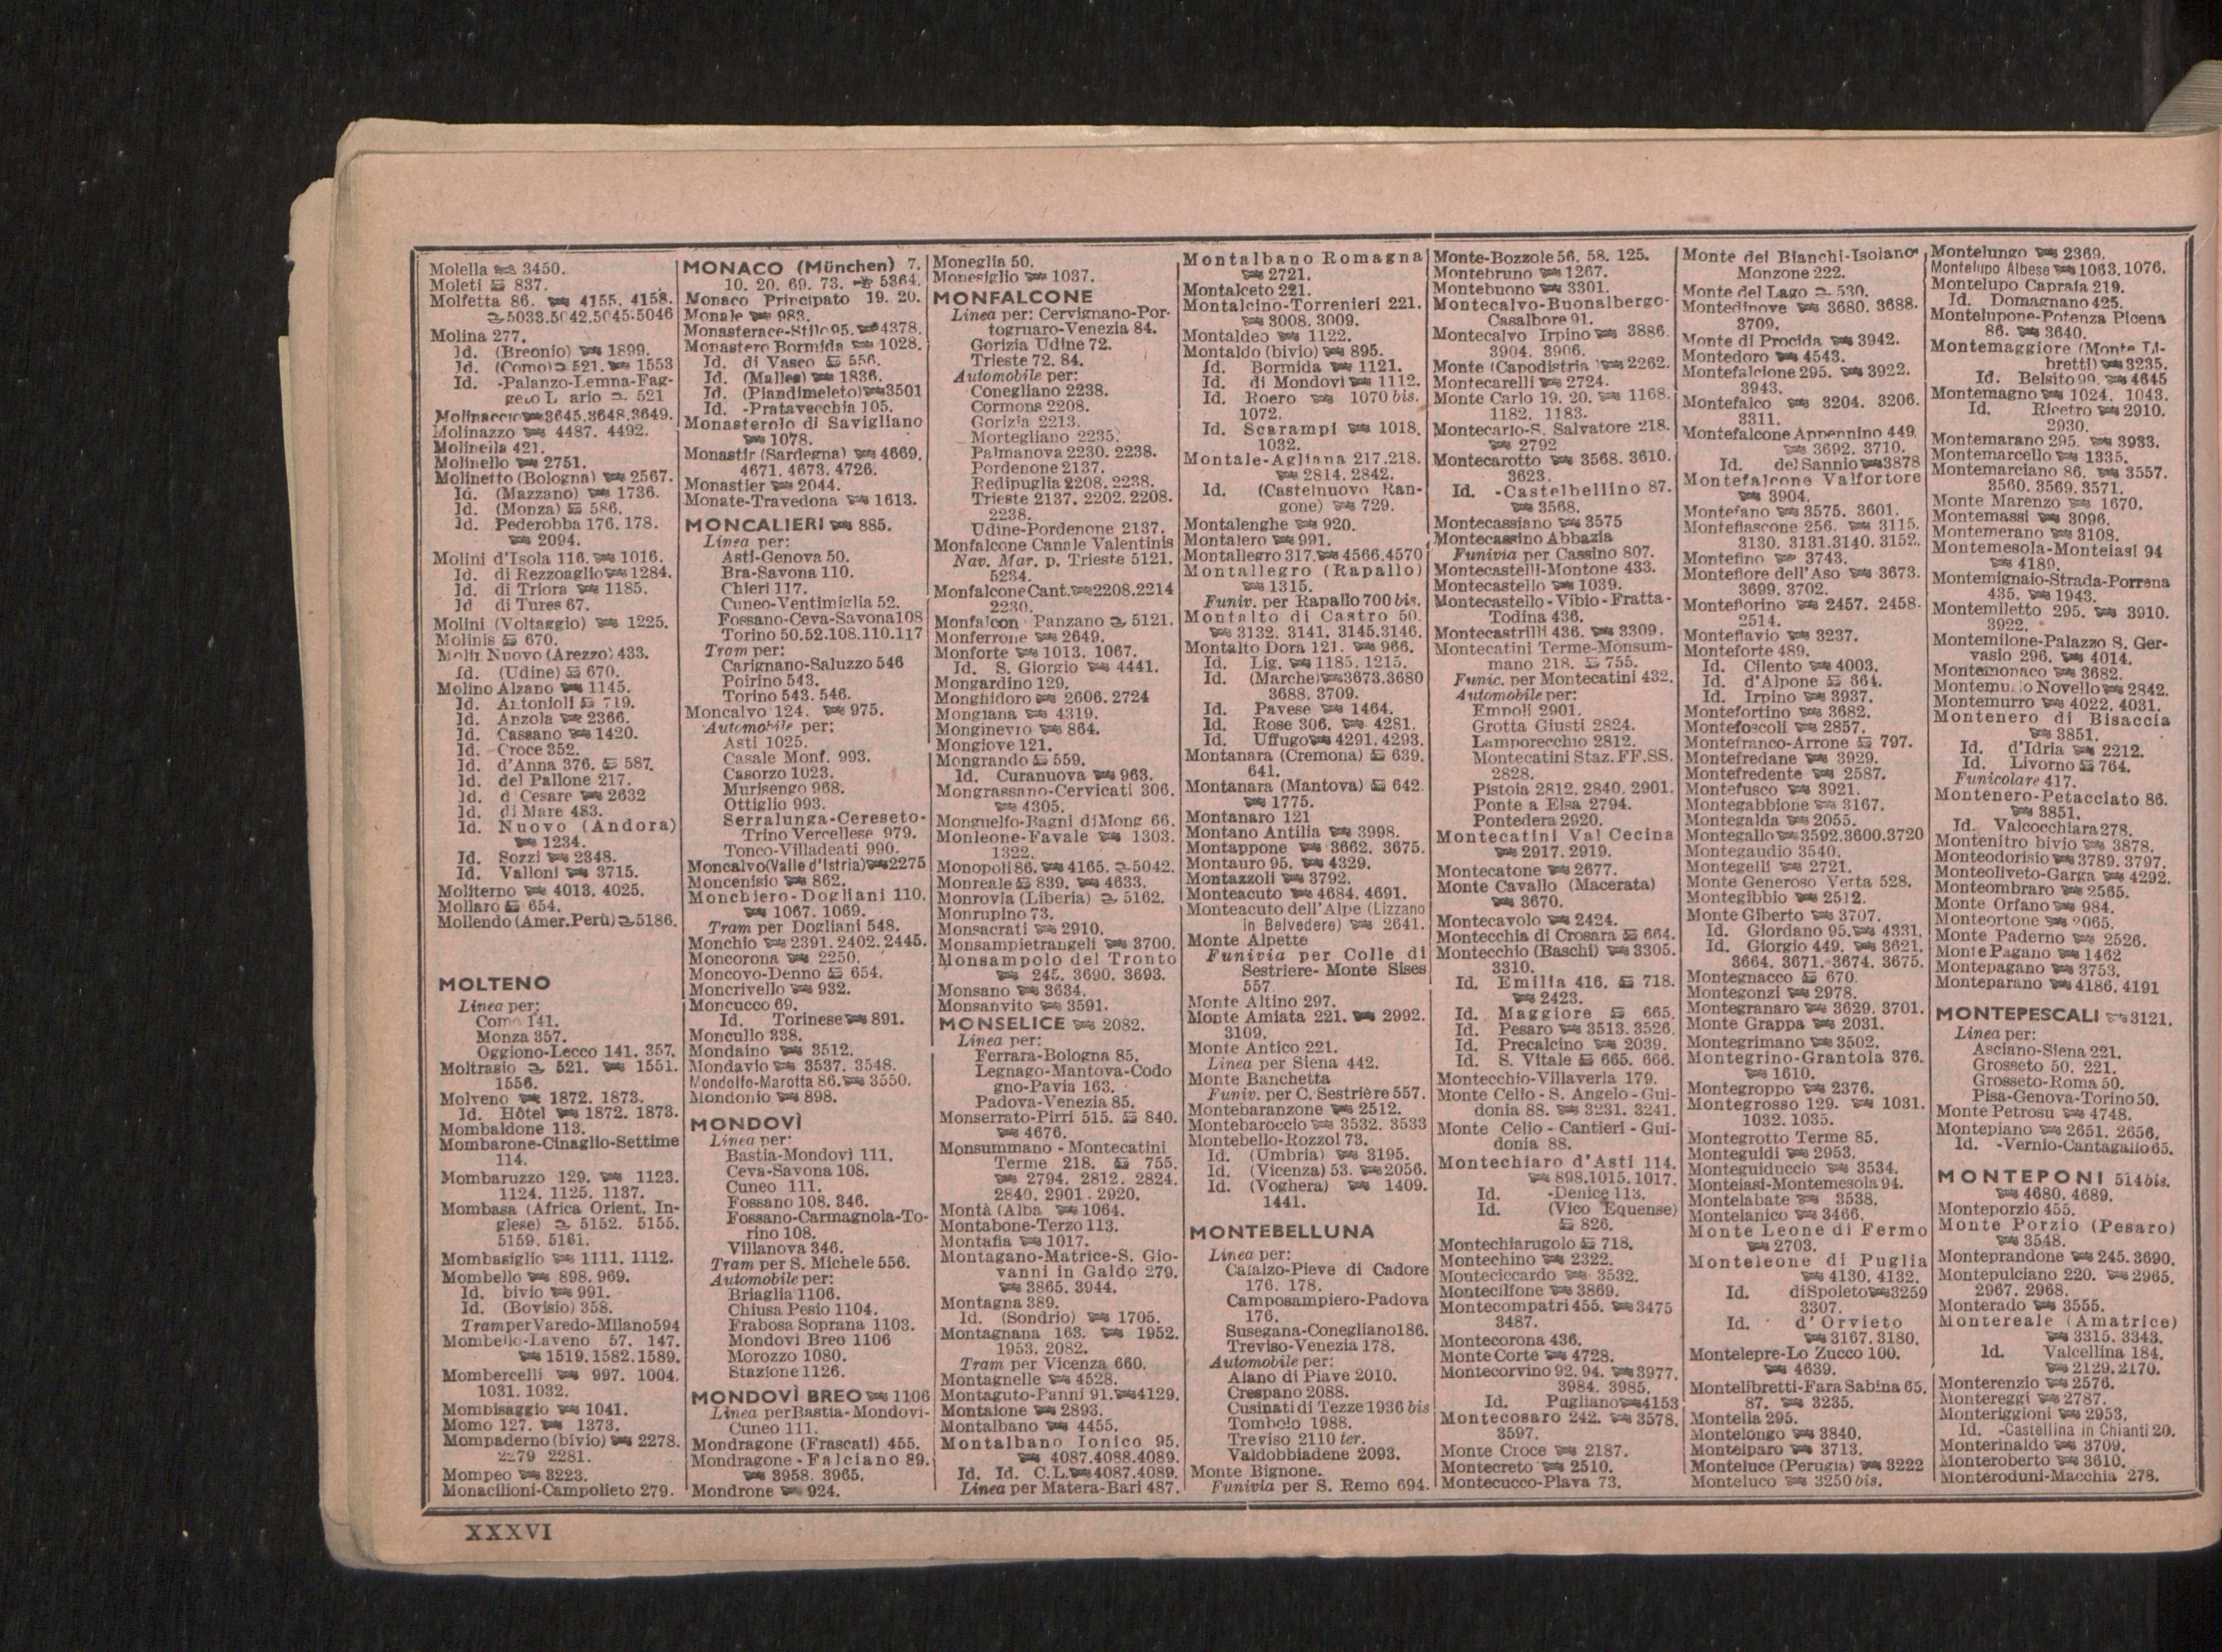 Molella 3450.
Moleti 837.
Molfetta 86. 4155. 4158.
5033.5042.5045.5046
Molina 277.
Id. (Breonio) 1899.
Id. (Como) 521. 1553
Id. -Palanzo-Lemna-Fag-
geto L ario 521
Molinaccio 3645.3648.3649.
Molinazzo 4487. 4492.
Molinella 421.
Molinello 2751.
Molinetto (Bologna) 2567.
Id. (Mazzano) 1736.
Id. (Monza) 586.
Id. Pederobba 176. 178.
2094.
Molini d'Isola 116. 1016.
Id. di Rezzoaglio 1284.
Id. di Triora 1185.
Id di Tures 67.
Molini (Voltaggio) 1225.
Molinis 670.
Molin Nuovo (Arezzo) 433.
Id. (Udine) 670.
Molino Alzano 1145.
Id. Antonioli 719.
Id. Anzola 2366.
Id. Cassano 1420.
Id. Croce 352.
Id. d'Anna 376. 587.
Id. del Pallone 217.
Id. d Cesare 2632
Id. di Mare 483.
Id. Nuovo (Andora)
1234.
Id. Sozzi 2348.
Id. Valloni 3715.
Moliterno 4013. 4025.
Mollaro 654.
Mollendo (Amer.Perù) 5186.
MOLTENO
Linea per:
Como 141.
Monza 357.
Oggiono-Lecco 141. 357.
Moltrasio 521. 1551.
1556.
Molveno 1872. 1873.
Id. Hôtel 1872. 1873.
Mombaldone 113.
Mombarone-Cinaglio-Settime
114.
Mombaruzzo 129. 1123.
1124. 1125. 1137.
Mombasa (Africa Orient. In-
glese) 5152. 5155.
5159. 5161.
Mombasiglio 1111. 1112.
Mombello 898. 969.
Id. bivio 991.
Id. (Bovisio) 358.
Tram per Varedo-Milano 594
Mombello-Laveno 57. 147.
1519.1582.1589.
Mombercelli 997. 1004.
1031. 1032.
Mombisaggio 1041.
Momo 127. 1373.
Mompaderno (bivio) 2278.
2279 2281.
Mompeo 3223.
Monacilioni-Campolieto 279.
MONACO (München) 7.
10. 20. 69. 73. 5364.
Monaco Principato 19. 20.
Monale 983.
Monasterace-Stilo 95. 4378.
Monastero Bormida 1028.
Id. di Vasco 556.
Id. (Malles) 1836.
Id. (Piandimeleto) 3501
Id. -Pratavecchia 105.
Monasterolo di Savigliano
1078.
Monastir (Sardegna) 4669.
4671. 4673. 4726.
Monastier 2044.
Monate-Travedona 1613.
MONCALIERI 885.
Linea per:
Asti-Genova 50.
Bra-Savona 110.
Chieri 117.
Cuneo-Ventimiglia 52.
Fossano-Ceva-Savona 108
Torino 50.52.108.110.117
Tram per:
Carignano-Saluzzo 546
Poirino 543.
Torino 543. 546.
Moncalvo 124. 975.
Automobile per:
Asti 1025.
Casale Monf. 993.
Casorzo 1023.
Murisengo 968.
Ottiglio 993.
Serralunga-Cereseto-
Trino Vercellese 979.
Tonco-Villadeati 990.
Moncalvo(Valle d'Istria) 2275
Moncenisio 862.
Monchiero-Dogliani 110.
1067. 1069.
Tram per Dogliani 548.
Monchio 2391. 2402. 2445.
Moncorona 2250.
Moncovo-Denno 654.
Moncrivello 932.
Moncucco 69.
Id. Torinese 891.
Moncullo 338.
Mondaino 3512.
Mondavio 3537. 3548.
Mondolfo-Marotta 86. 3550.
Mondonio 898.
MONDOVÌ
Linea per:
Bastia-Mondovì 111.
Ceva-Savona 108.
Cuneo 111.
Fossano 108. 346.
Fossano-Carmagnola-To-
rino 108.
Villanova 346.
Tram per S. Michele 556.
Automobile per:
Briaglia 1106.
Chiusa Pesio 1104.
Frabosa Soprana 1103.
Mondovì Breo 1106
Morozzo 1080.
Stazione 1126.
MONDOVÌ BREO 1106
Linea per Bastia-Mondovì-
Cuneo 111.
Mondragone (Frascati) 455.
Mondragone-Falciano 89.
3958. 3965.
Mondrone 924.
Moneglia 50.
Monesiglio 1037.
MONFALCONE
Linea per: Cervignano-Por-
togruaro-Venezia 84.
Gorizia Udine 72.
Trieste 72. 84.
Automobile per:
Conegliano 2238.
Cormons 2208.
Gorizia 2213.
Mortegliano 2235.
Palmanova 2230. 2238.
Pordenone 2137.
Redipuglia 2208. 2238.
Trieste 2137. 2202. 2208.
2238.
Udine-Pordenone 2137.
Monfalcone Canale Valentinis
Nav. Mar. p. Trieste 5121.
5234.
Monfalcone Cant. 2208.2214
2230.
Monfalcon Panzano 5121.
Monferrone 2649.
Monforte 1013. 1067.
Id. S. Giorgio 4441.
Mongardino 129.
Monghidoro 2606. 2724
Mongiana 4319.
Monginevro 864.
Mongiove 121.
Mongrando 559.
Id. Curanuova 963.
Mongrassano-Cervicati 306.
4305.
Monguelfo-Bagni di Mong 66.
Monleone-Favale 1303.
1322.
Monopoli 86. 4165. 5042.
Monreale 839. 4633.
Monrovia (Liberia) 5162.
Monrupino 73.
Monsacrati 2910.
Monsampietrangeli 3700.
Monsampolo del Tronto
245. 3690. 3693.
Monsano 3634.
Monsanvito 3591.
MONSELICE 2082.
Linea per:
Ferrara-Bologna 85.
Legnago-Mantova-Codo
gno-Pavia 163.
Padova-Venezia 85.
Monserrato-Pirri 515. 840.
4676.
Monsummano - Montecatini
Terme 218. 755.
2794. 2812. 2824.
2840. 2901. 2920.
Montà (Alba 1064.
Montabone-Terzo 113.
Montafia 1017.
Montagano-Matrice-S. Gio-
vanni in Galdo 279.
3865. 3944.
Montagna 389.
Id. (Sondrio) 1705.
Montagnana 163. 1952.
1953. 2082.
Tram per Vicenza 660.
Montagnelle 4528.
Montaguto-Panni 91. 4129.
Montaione 2893.
Montalbano 4455.
Montalbano Ionico 95.
4087.4088.4089.
Id. Id. C.L. 4087.4089.
Linea per Matera-Bari 487.
Montalbano Romagna
2721.
Montalceto 221.
Montalcino-Torrenieri 221.
3008. 3009.
Montaldeo 1122.
Montaldo (bivio) 895.
Id. Bormida 1121.
Id. di Mondovì 1112.
Id. Roero 1070 bis.
1072.
Id. Scarampi 1018.
1032.
Montale-Agliana 217.218.
2814. 2842.
Id. (Castelnuovo Ran-
gone) 729.
Montalenghe 920.
Montalero 991.
Montallegro 317. 4566.4570
Montallegro (Rapallo)
1315.
Funiv. per Rapallo 700 bis.
Montalto di Castro 50.
3132. 3141. 3145.3146.
Montalto Dora 121. 966.
Id. Lig. 1185. 1215.
Id. (Marche) 3673.3680
3688. 3709.
Id. Pavese 1464.
Id. Rose 306. 4281.
Id. Uffugo 4291. 4293.
Montanara (Cremona) 639.
641.
Montanara (Mantova) 642.
1775.
Montanaro 121
Montano Antilia 3998.
Montappone 3662. 3675.
Montauro 95. 4329.
Montazzoli 3792.
Monteacuto 4684. 4691.
Monteacuto dell'Alpe (Lizzano
in Belvedere) 2641.
Monte Alpette
Funivia per Colle di
Sestriere- Monte Sises
557
Monte Altino 297.
Monte Amiata 221. 2992.
3109.
Monte Antico 221.
Linea per Siena 442.
Monte Banchetta
Funiv. per C. Sestrière 557.
Montebaranzone 2512.
Montebaroccio 3532. 3533
Montebello-Rozzol 73.
Id. (Umbria) 3195.
Id. (Vicenza) 53. 2056.
Id. (Voghera) 1409.
1441.
MONTEBELLUNA
Linea per:
Calalzo-Pieve di Cadore
176. 178.
Camposampiero-Padova
176.
Susegana-Conegliano 186.
Treviso-Venezia 178.
Automobile per:
Alano di Piave 2010.
Crespano 2088.
Cusinati di Tezze 1936 bis
Tombolo 1988.
Treviso 2110 ter.
Valdobbiadene 2093.
Monte Bignone.
Funivia per S. Remo 694.
Monte-Bozzole 56. 58. 125.
Montebruno 1267.
Montebuono 3301.
Montecalvo-Buonalbergo-
Casalbore 91.
Montecalvo Irpino 3886.
3904. 3906.
Monte (Capodistria) 2262.
Montecarelli 2724.
Monte Carlo 19. 20. 1168.
1182. 1183.
Montecarlo-S. Salvatore 218.
2792
Montecarotto 3568. 3610.
3623.
Id. -Castelbellino 87.
3568.
Montecassiano 3575
Montecassino Abbazia
Funivia per Cassino 807.
Montecastelli-Montone 433.
Montecastello 1039.
Montecastello-Vibio-Fratta-
Todina 436.
Montecastrilli 436. 3309.
Montecatini Terme-Monsum-
mano 218. 755.
Funic. per Montecatini 432.
Automobile per:
Empoli 2901.
Grotta Giusti 2824.
Lamporecchio 2812.
Montecatini Staz. FF.SS.
2828.
Pistoia 2812. 2840. 2901.
Ponte a Elsa 2794.
Pontedera 2920.
Montecatini Val Cecina
2917. 2919.
Montecatone 2677.
Monte Cavallo (Macerata)
3670.
Montecavolo 2424.
Montecchia di Crosara 664.
Montecchio (Baschi) 3305.
3310.
Id. Emilia 416. 718.
2423.
Id. Maggiore 665.
Id. Pesaro 3513. 3526.
Id. Precalcino 2039.
Id. S. Vitale 665. 666.
Montecchio-Villaverla 179.
Monte Celio - S. Angelo - Gui-
donia 88. 3231. 3241.
Monte Celio - Cantieri - Gui-
donia 88.
Montechiaro d'Asti 114.
898.1015.1017.
Id. -Denice 113.
Id. (Vico Equense)
826.
Montechiarugolo 718.
Montechino 2322.
Monteciccardo 3532.
Montecilfone 3869.
Montecompatri 455. 3475
3487.
Montecorona 436.
Monte Corte 4728.
Montecorvino 92. 94. 3977.
3984. 3985.
Id. Pugliano 4153
Montecosaro 242. 3578.
3597.
Monte Croce 2187.
Montecreto 2510.
Montecucco-Plava 73.
Monte dei Bianchi-Isolano
Monzone 222.
Monte del Lago 530.
Montedinove 3680. 3688.
3709.
Monte di Procida 3942.
Montedoro 4543.
Montefalcione 295. 3922.
3943.
Montefalco 3204. 3206.
3311.
Montefalcone Appennino 449.
3692. 3710.
Id. del Sannio 3878
Montefalcone Valfortore
3904.
Montefano 3575. 3601.
Montefiascone 256. 3115.
3130. 3131.3140. 3152.
Montefino 3743.
Montefiore dell'Aso 3673.
3699. 3702.
Montefiorino 2457. 2458.
2514.
Monteflavio 3237.
Monteforte 489.
Id. Cilento 4003.
Id. d'Alpone 664.
Id. Irpino 3937.
Montefortino 3682.
Montefoscoli 2857.
Montefranco-Arrone 797.
Montefredane 3929.
Montefredente 2587.
Montefusco 3921.
Montegabbione 3167.
Montegalda 2055.
Montegallo 3592.3600.3720
Montegaudio 3540.
Montegelli 2721.
Monte Generoso Vetta 528.
Montegibbio 2512.
Monte Giberto 3707.
Id. Giordano 95. 4331.
Id. Giorgio 449. 3621.
3664. 3671. 3674. 3675.
Montegnacco 670.
Montegonzi 2978.
Montegranaro 3629. 3701.
Monte Grappa 2031.
Montegrimano 3502.
Montegrino-Grantola 376.
1610.
Montegroppo 2376.
Montegrosso 129. 1031.
1032. 1035.
Montegrotto Terme 85.
Monteguidi 2953.
Monteguiduccio 3534.
Monteiasi-Montemesola 94.
Montelabate 3538.
Montelanico 3466.
Monte Leone di Fermo
2703.
Monteleone di Puglia
4130. 4132.
Id. di Spoleto 3259
3307.
Id. d'Orvieto
3167. 3180.
Montelepre-Lo Zucco 100.
4639.
Montelibretti-Fara Sabina 65.
87. 3235.
Montella 295.
Montelongo 3840.
Montelparo 3713.
Monteluce (Perugia) 3222
Monteluco 3250 bis.
Montelungo 2369.
Montelupo Albese 1063. 1076.
Montelupo Capraia 219.
Id. Domagnano 425.
Montelupone-Potenza Picena
86. 3640.
Montemaggiore (Monte Li-
bretti) 3235.
Id. Belsito 99. 4645
Montemagno 1024. 1043.
Id. Ricetro 2910.
2930.
Montemarano 295. 3933.
Montemarcello 1335.
Montemarciano 86. 3557.
3560. 3569. 3571.
Monte Marenzo 1670.
Montemassi 3096.
Montemerano 3108.
Montemesola-Monteiasi 94
4189.
Montemignaio-Strada-Porrena
435. 1943.
Montemiletto 295. 3910.
3922.
Montemilone-Palazzo S. Ger-
vasio 296. 4014.
Montemonaco 3682.
Montemurlo Novello 2842.
Montemurro 4022. 4031.
Montenero di Bisaccia
3851.
Id. d'Idria 2212.
Id. Livorno 764.
Funicolare 417.
Montenero-Petacciato 86.
3851.
Id. Valcocchiara 278.
Montenitro bivio 3878.
Monteodorisio 3789. 3797.
Monteoliveto-Garga 4292.
Monteombraro 2565.
Monte Orfano 984.
Monteortone 2065.
Monte Paderno 2526.
Monte Pagano 1462
Montepagano 3753.
Monteparano 4186. 4191
MONTEPESCALI 3121.
Linea per:
Asciano-Siena 221.
Grosseto 50. 221.
Grosseto-Roma 50.
Pisa-Genova-Torino 50.
Monte Petrosu 4748.
Montepiano 2651. 2656.
Id. -Vernio-Cantagallo 65.
MONTEPONI 514 bis.
4680. 4689.
Monteporzio 455.
Monte Porzio (Pesaro)
3548.
Monteprandone 245. 3690.
Montepulciano 220. 2965.
2967. 2968.
Monterado 3555.
Montereale (Amatrice)
3315. 3343.
Id. Valcellina 184.
2129. 2170.
Monterenzio 2576.
Montereggi 2787.
Monteriggioni 2953.
Id. -Castellina in Chianti 20.
Monterinaldo 3709.
Monteroberto 3610.
Monteroduni-Macchia 278.
XXXVI